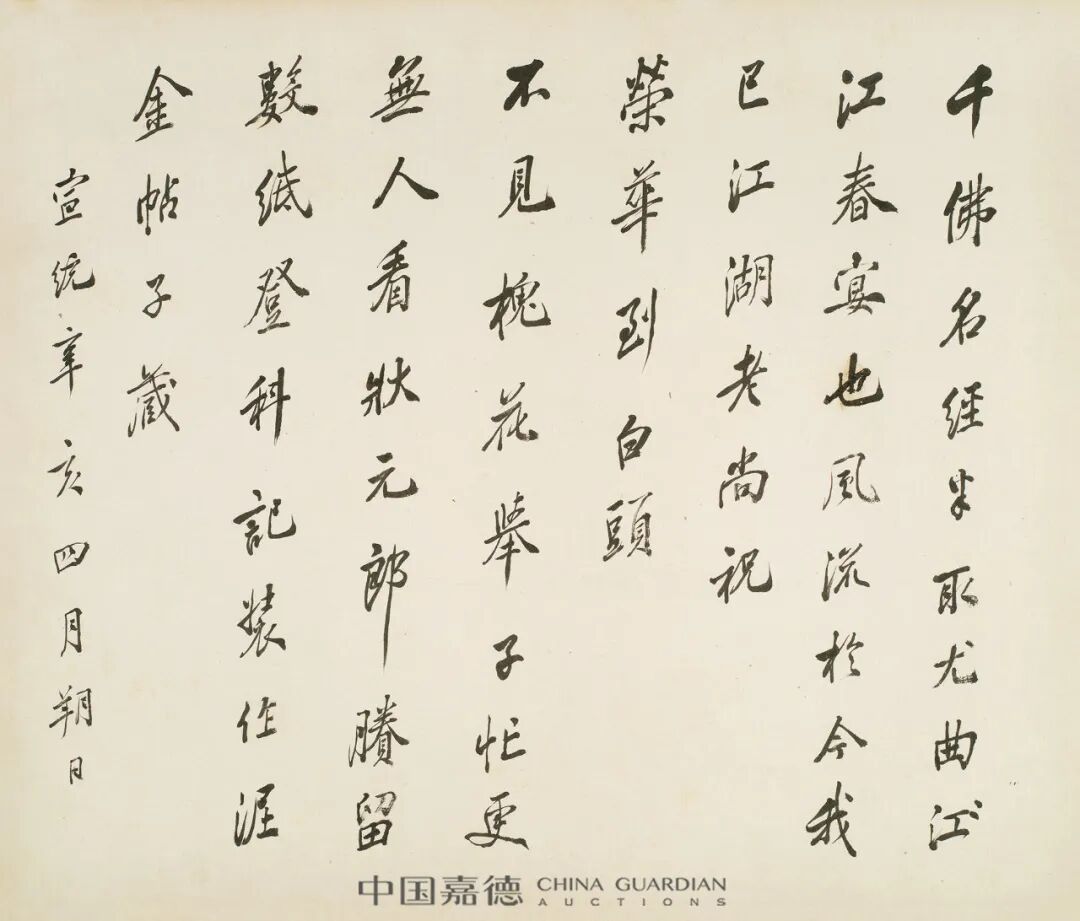 千佛名經取尤曲江
江春宴也風流於今我
已江湖老尚祝
榮華到白頭
不見槐花舉子忙更
無人看狀元郎賸留
數紙登科記裝作泥
金帖子藏
宣統辛亥四月朔日
中国嘉德 CHINA GUARDIAN AUCTIONS